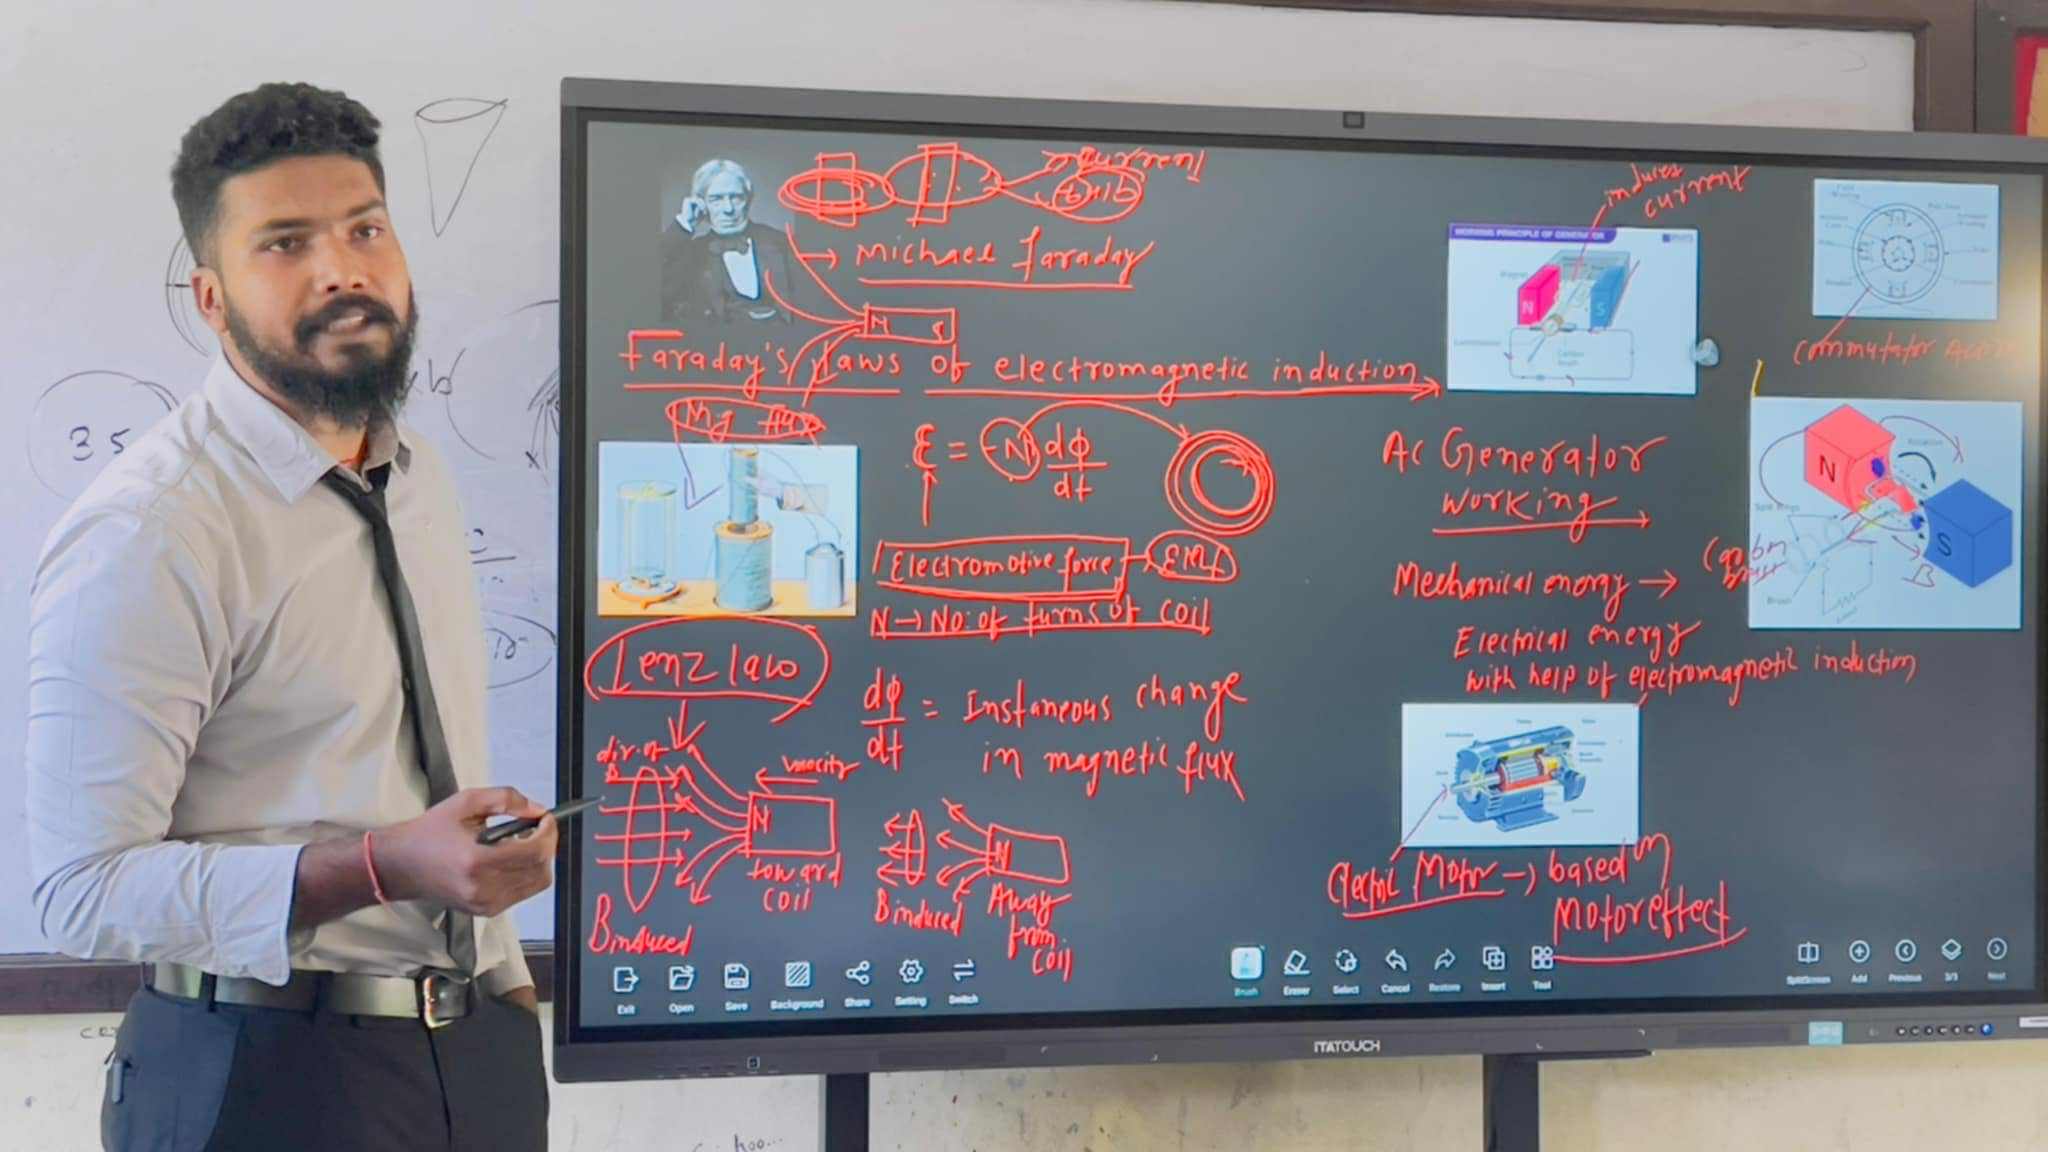 current
bulb
→ Michael faraday
N S
Faraday's laws of electromagnetic induction
Mg flux
ε = -N dφ/dt
Electromotive force → EMF
N → No: of turns of coil
Lenz law
dφ/dt = Instaneous change
in magnetic flux
dir. of
B
velocity
N
toward
coil
B induced
N
B induced
Away
from
coil
induces
current
WORKING PRINCIPLE OF GENERATOR
Magnet
N S
Carbon
Brush
Commutator
AC Generator
working
Mechanical energy →
Electrical energy
with help of electromagnetic induction
N
S
Rotation
Split Rings
Brush
B
Electric Motor → based on
Motor effect
Exit Open Save Background Share Setting Switch
Brush Eraser Select Cancel Restore Insert Tool
SplitScreen Add Previous 3/3 Next
ITATOUCH
35